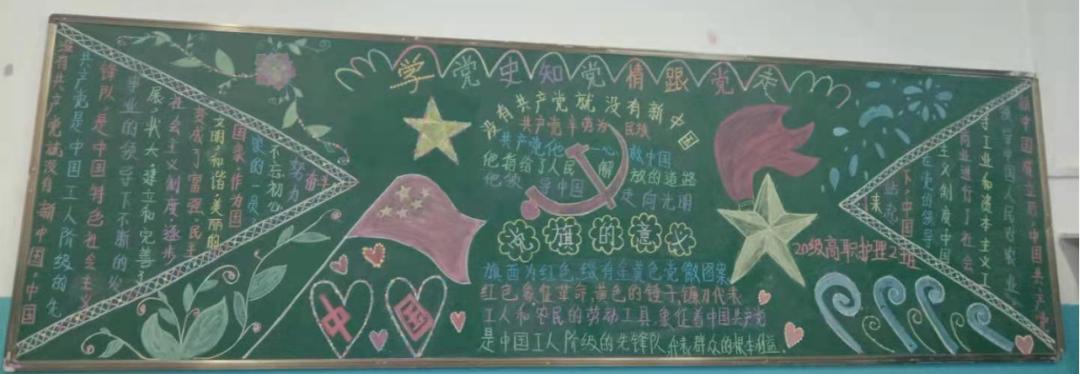 学党史知党情跟党走
没有共产党就没有新中国
共产党辛劳为民族
共产党他一心救中国
他指给了人民解放的道路
他领导中国走向光明
党旗的意义
旗面为红色,缀有金黄色党徽图案
红色象征革命,黄色的锤子、镰刀代表
工人和农民的劳动工具,象征着中国共产党
是中国工人阶级的先锋队,代表群众的根本利益。
中国
20级高职护理2班
没有共产党就没有新中国,中国
共产党是中国工人阶级的先
锋队,是中国特色社会主义
事业的领导下不断的发
展壮大,建立和完善了
社会主义制度逐步
变成了富强、民主
文明和谐、美丽的
国家,作为国
家的一员
不忘初心
努力
奋斗
新中国成立后,中国共产党
领导全国人民对农业
手工业和资本主义工
商业进行了社会
主义制度,中国
在党的领导
下,中国
站起
来